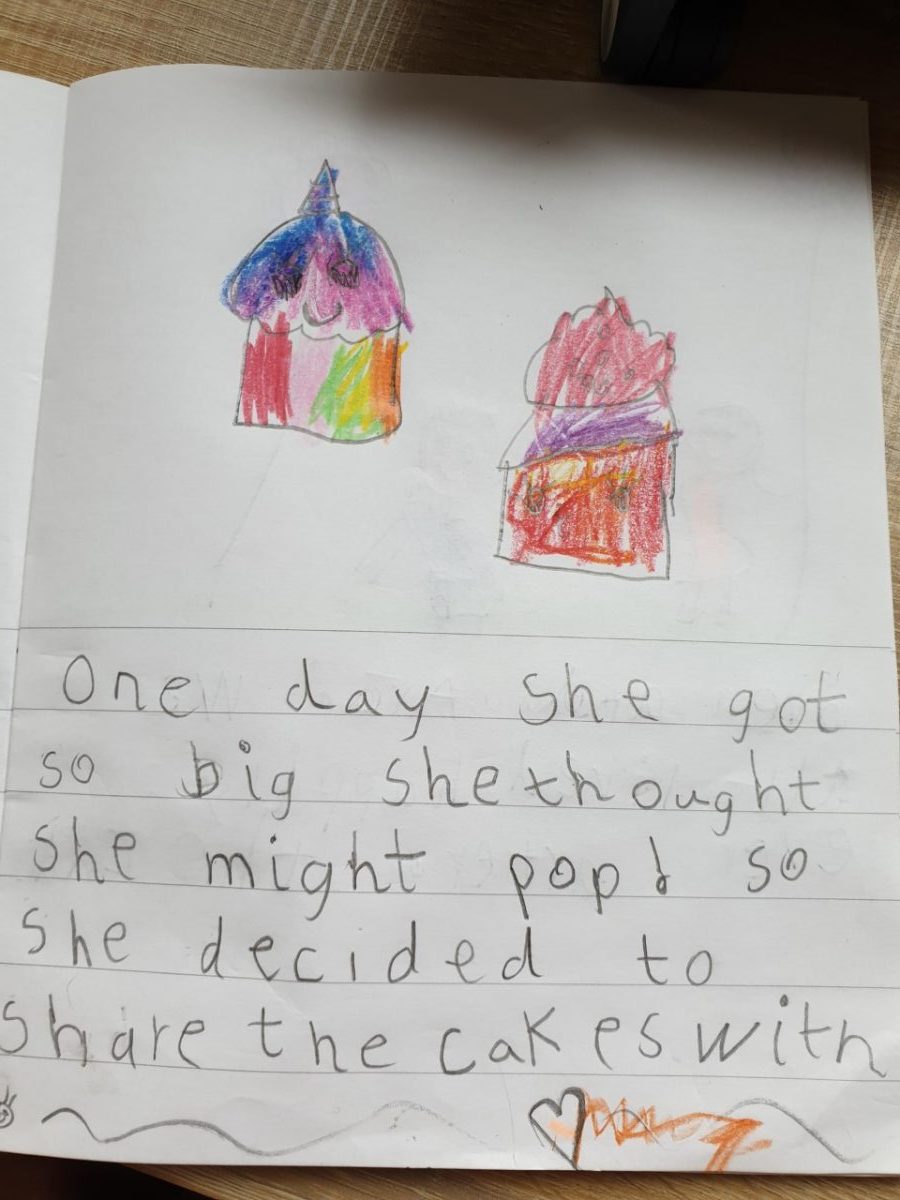 One day she got
so big she thought
she might pop! so
She decided to
Share the cakes with